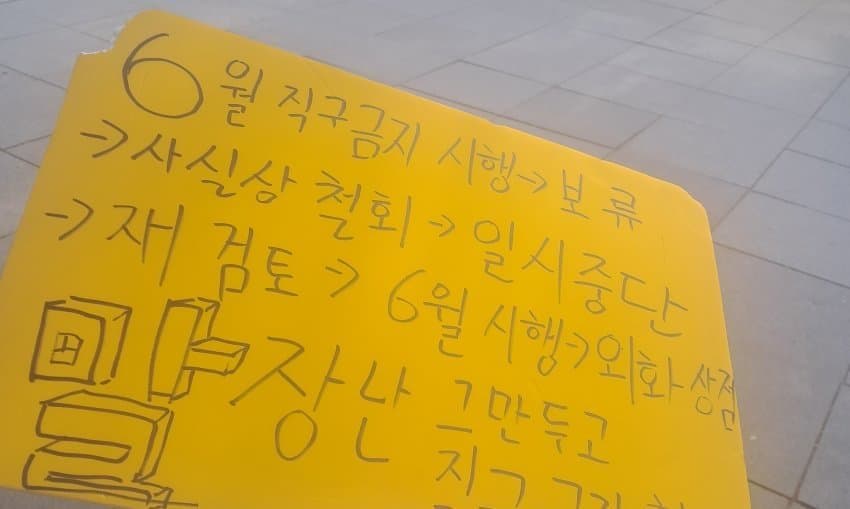 6월 직구금지 시행→보류
→사실상 철회→일시중단
→재검토→6월 시행→외화상점
말장난 그만두고
직구